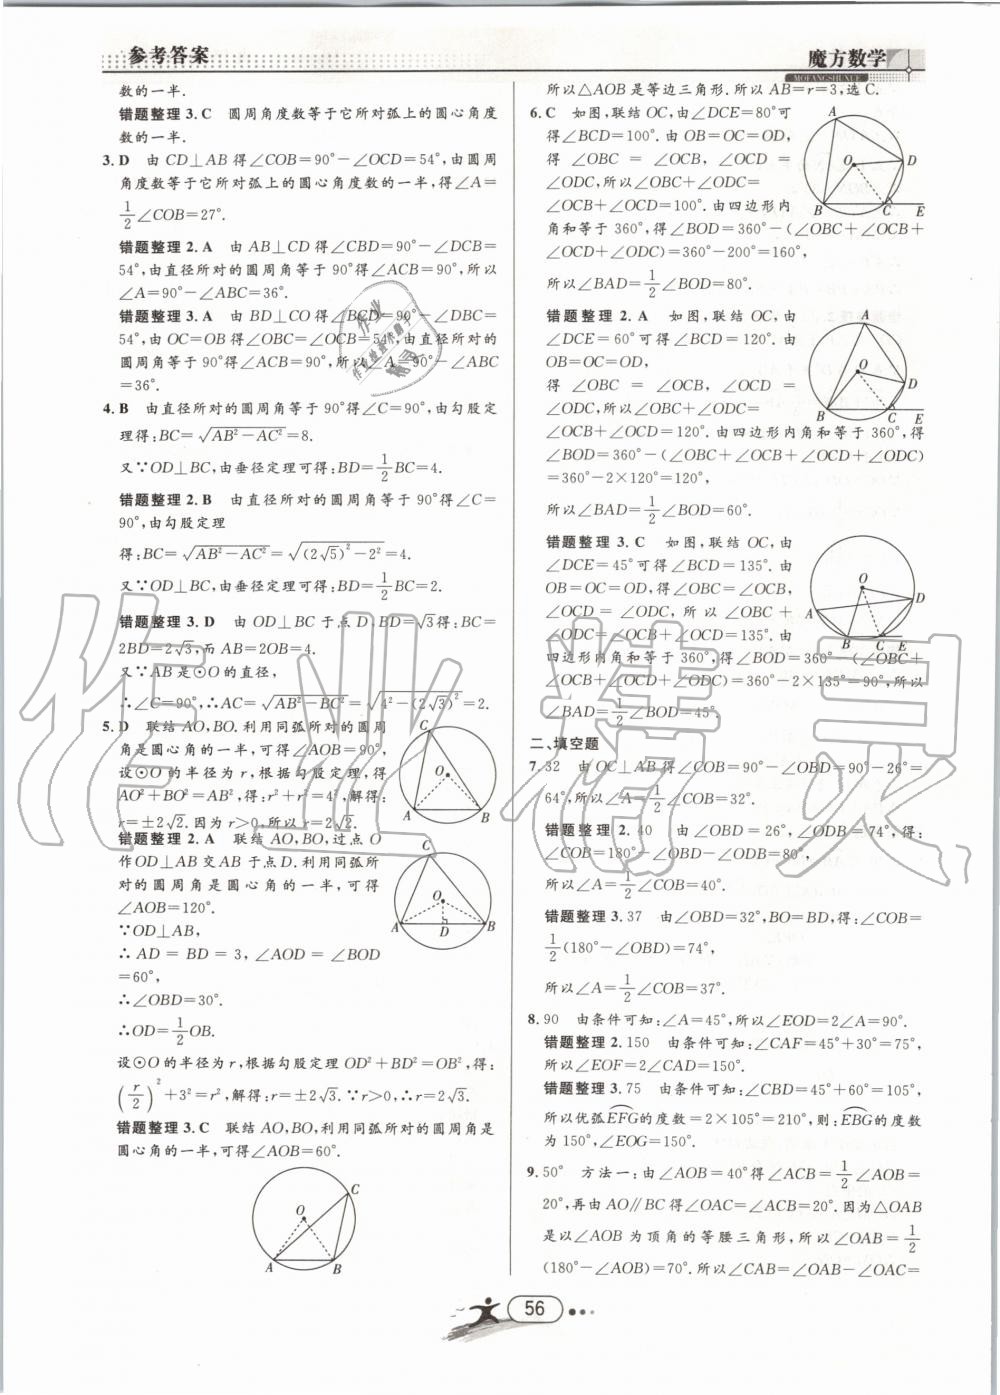 参考答案
魔方数学
MOFANGSHUXUE
数的一半.
错题整理 3. C 圆周角度数等于它所对弧上的圆心角度
数的一半.
3. D 由 CD⊥AB 得∠COB=90°-∠OCD=54°,由圆周
角度数等于它所对弧上的圆心角度数的一半,得∠A=
1/2∠COB=27°.
错题整理 2. A 由 AB⊥CD 得∠CBD=90°-∠DCB=
54°,由直径所对的圆周角等于 90°得∠ACB=90°,所以
∠A=90°-∠ABC=36°.
错题整理 3. A 由 BD⊥CO 得∠BCO=90°-∠DBC=
54°,由 OC=OB 得∠OBC=∠OCB=54°,由直径所对的
圆周角等于 90°得∠ACB=90°,所以∠A=90°-∠ABC=
36°.
4. B 由直径所对的圆周角等于 90°得∠C=90°,由勾股定
理得:BC=√(AB²-AC²)=8.
又∵OD⊥BC,由垂径定理可得:BD=1/2BC=4.
错题整理 2. B 由直径所对的圆周角等于 90°得∠C=
90°,由勾股定理
得:BC=√(AB²-AC²)=√((2√5)²-2²)=4.
又∵OD⊥BC,由垂径定理可得:BD=1/2BC=2.
错题整理 3. D 由 OD⊥BC 于点 D,BD=√3得:BC=
2BD=2√3,而 AB=2OB=4.
又∵AB 是⊙O 的直径,
∴∠C=90°,∴AC=√(AB²-BC²)=√(4²-(2√3)²)=2.
5. D 联结 AO,BO.利用同弧所对的圆周
角是圆心角的一半,可得∠AOB=90°,
设⊙O 的半径为 r,根据勾股定理,得
AO²+BO²=AB²,得:r²+r²=4²,解得:
r=±2√2.因为 r>0,所以 r=2√2.
C
O
A
B
错题整理 2. A 联结 AO,BO,过点 O
作 OD⊥AB 交 AB 于点 D.利用同弧所
对的圆周角是圆心角的一半,可得
∠AOB=120°.
∵OD⊥AB,
∴AD=BD=3,∠AOD=∠BOD
=60°,
∴∠OBD=30°.
∴OD=1/2OB.
C
O
A
D
B
设⊙O 的半径为 r,根据勾股定理 OD²+BD²=OB²,得:
(r/2)²+3²=r²,解得:r=±2√3.∵r>0,∴r=2√3.
错题整理 3. C 联结 AO,BO,利用同弧所对的圆周角是
圆心角的一半,可得∠AOB=60°.
C
O
A
B
所以△AOB 是等边三角形.所以 AB=r=3,选 C.
6. C 如图,联结 OC,由∠DCE=80°可
得∠BCD=100°.由 OB=OC=OD,
得∠OBC=∠OCB,∠OCD=
∠ODC,所以∠OBC+∠ODC=
∠OCB+∠OCD=100°.由四边形内
角和等于 360°,得∠BOD=360°-(∠OBC+∠OCB+
∠OCD+∠ODC)=360°-200°=160°,
所以∠BAD=1/2∠BOD=80°.
A
O
D
B
C
E
错题整理 2. A 如图,联结 OC,由
∠DCE=60°可得∠BCD=120°.由
OB=OC=OD,
得∠OBC=∠OCB,∠OCD=
∠ODC,所以∠OBC+∠ODC=
∠OCB+∠OCD=120°.由四边形内角和等于 360°,得
∠BOD=360°-(∠OBC+∠OCB+∠OCD+∠ODC)
=360°-2×120°=120°,
所以∠BAD=1/2∠BOD=60°.
A
O
D
B
C
E
错题整理 3. C 如图,联结 OC,由
∠DCE=45°可得∠BCD=135°.由
OB=OC=OD,得∠OBC=∠OCB,
∠OCD=∠ODC,所以∠OBC+
∠ODC=∠OCB+∠OCD=135°.由
四边形内角和等于 360°,得∠BOD=360°-(∠OBC+
∠OCB+∠OCD+∠ODC)=360°-2×135°=90°,所以
∠BAD=1/2∠BOD=45°.
O
A
D
B
C
E
二、填空题
7. 32 由 OC⊥AB 得∠COB=90°-∠OBD=90°-26°=
64°,所以∠A=1/2∠COB=32°.
错题整理 2. 40 由∠OBD=26°,∠ODB=74°,得:
∠COB=180°-∠OBD-∠ODB=80°,
所以∠A=1/2∠COB=40°.
错题整理 3. 37 由∠OBD=32°,BO=BD,得:∠COB=
1/2(180°-∠OBD)=74°,
所以∠A=1/2∠COB=37°.
8. 90 由条件可知:∠A=45°,所以∠EOD=2∠A=90°.
错题整理 2. 150 由条件可知:∠CAF=45°+30°=75°,
所以∠EOF=2∠CAD=150°.
错题整理 3. 75 由条件可知:∠CBD=45°+60°=105°,
所以优弧EFG的度数=2×105°=210°,则:EBG的度数
为 150°,∠EOG=150°.
9. 50° 方法一:由∠AOB=40°得∠ACB=1/2∠AOB=
20°,再由 AO∥BC 得∠OAC=∠ACB=20°.因为△OAB
是以∠AOB 为顶角的等腰三角形,所以∠OAB=1/2
(180°-∠AOB)=70°.所以∠CAB=∠OAB-∠OAC=
56
作业精灵